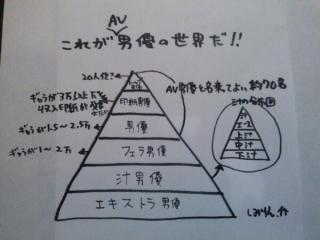 AV
これが男優の世界だ!!
20人位?
ギャラが3万以上で
印紙男優
AV男優と名乗ってよい約70名
ギャラが1.5~2.5万
男優
ギャラが1~2万
フェラ男優
汁男優
エキストラ男優
汁
エース
上汁
中汁
下汁
しみけん